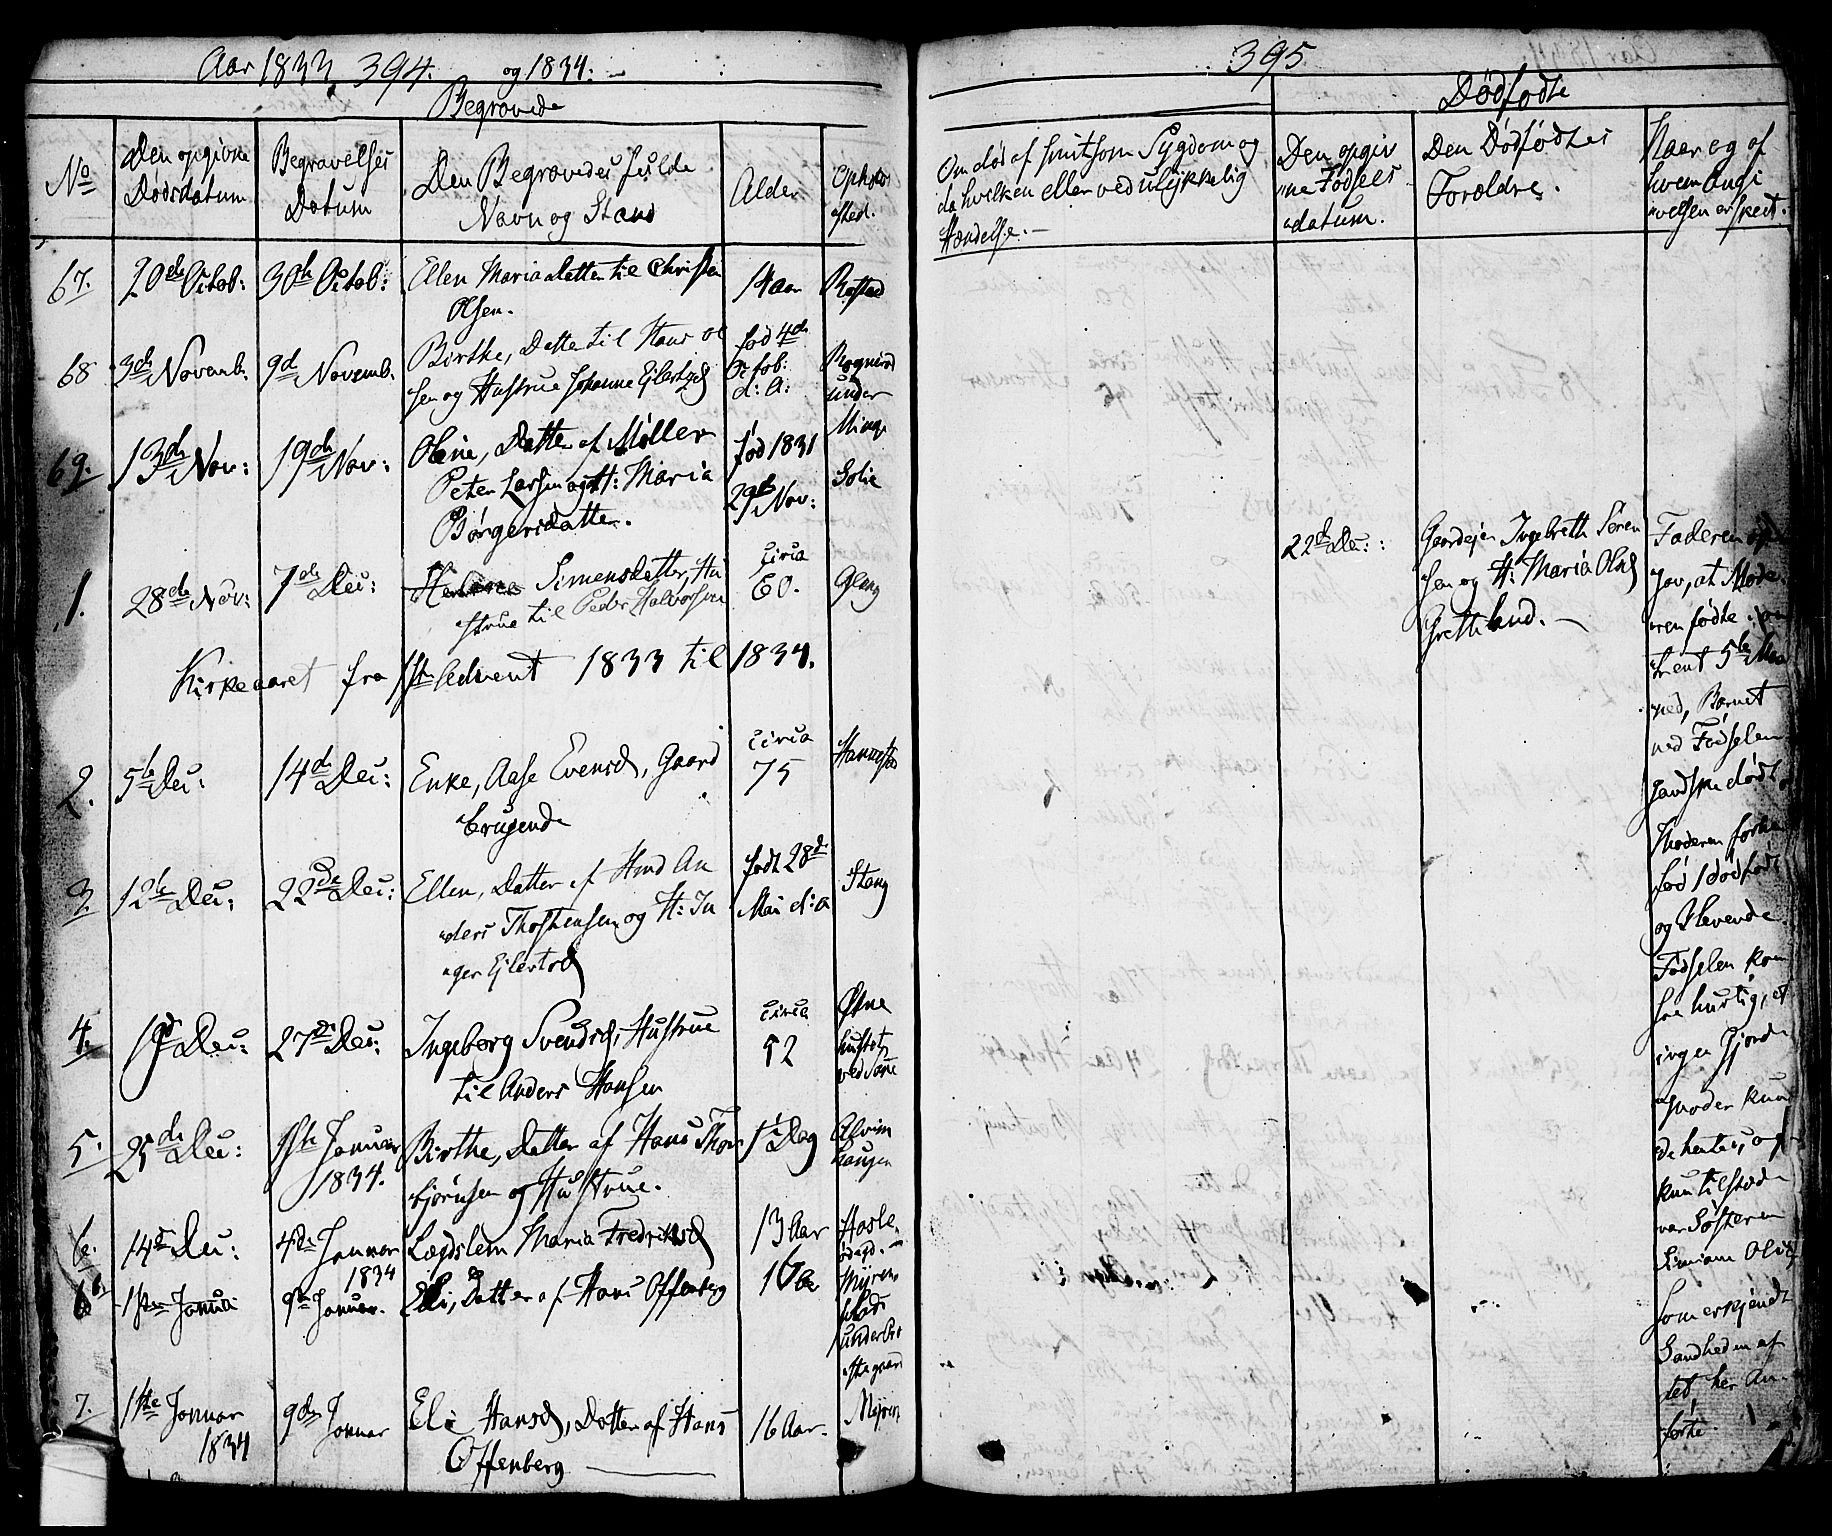 Aar 1833 394. og 1834.
Begravede
No
Den opgivne
Dødsdatum
Begravelses
Datum
Den Begravedes fulde
Navn og Stand
Alder
Opholds
sted.
67.
20de Octob:
30te Octob:
Ellen Maria Datter til Christen
Olsen.
1 Aar
68
3de Novemb:
9de Novemb.
Birthe, Datter til Hans Ol
sen og Hustrue Johanne Ejlertsd
fød 4de
Octob:
d: A:
under
Minge
69.
13de Nov:
19de Nov:
Oline, Datter af Møller
Peter Larsen og H: Maria
Børgersdatter.
fød 1831
29de Nov:
Solie
1.
28de Nov:
7de Dec:
Simensdatter, Hu
strue til Peder Halvorsen
circa
60.
Gleng
Kirkeaaret fra 1ste Advent 1833 til 1834.
2.
5te Dec:
14de Dec:
Enke, Aase Evensd, Gaard
brugende
circa
75
3.
12te Dec:
22de Dec:
Ellen, Datter af Hmd An
ders Thostensen og H: In
ger Ejlertsd
født 28de
Mai d: a
Stang
4.
19de Dec:
27de Dec:
Ingeborg Svendsd, Hustrue
til Anders Hansen
circa
52
5.
25de Dec:
1ste Januar
1834.
Birthe, Datter af Hans Thor
bjørnsen og Hustrue.
1 Dag
Alvim
haugen
6.
14de Dec:
4de Januar
1834
Lægdslem Maria Fredriksd
13 Aar
Hasle
6b
1ste Janua
9de Januar.
Eli, Datter af Hans Offenberg
16
under
7.
1ste Januar
1834
9de Januar
Eli Hansd, Datter af Hans
Offenberg
16 Aar.
Myren
395
Om død af smitsom Sygdom og
da hvilken eller ved ulykkelig
Hændelse.
Dødfødte
Den opgiv
ne Fødsels
datum.
Den Dødfødtes
Forældre.
Naar og af
hvem Angi
velsen er skeet.
22de Dec:
Gaardejer Ingebreth Søren
sen og H: Maria Olsd
Grettelund.
Faderen
at Mode
ren fødte
5te Maa
ned, Barnet
ved Fødselen
ganske dødt
Moderen
fød 1 dødfødt
og 2 levende.
Fødselen kom
saa hurtig, at
ingen Gjorde
moder kun
de hentes, og
kun tilstæde
var Søsteren
Olsd
som erkjendt
Sandheden af
det her An
førte.